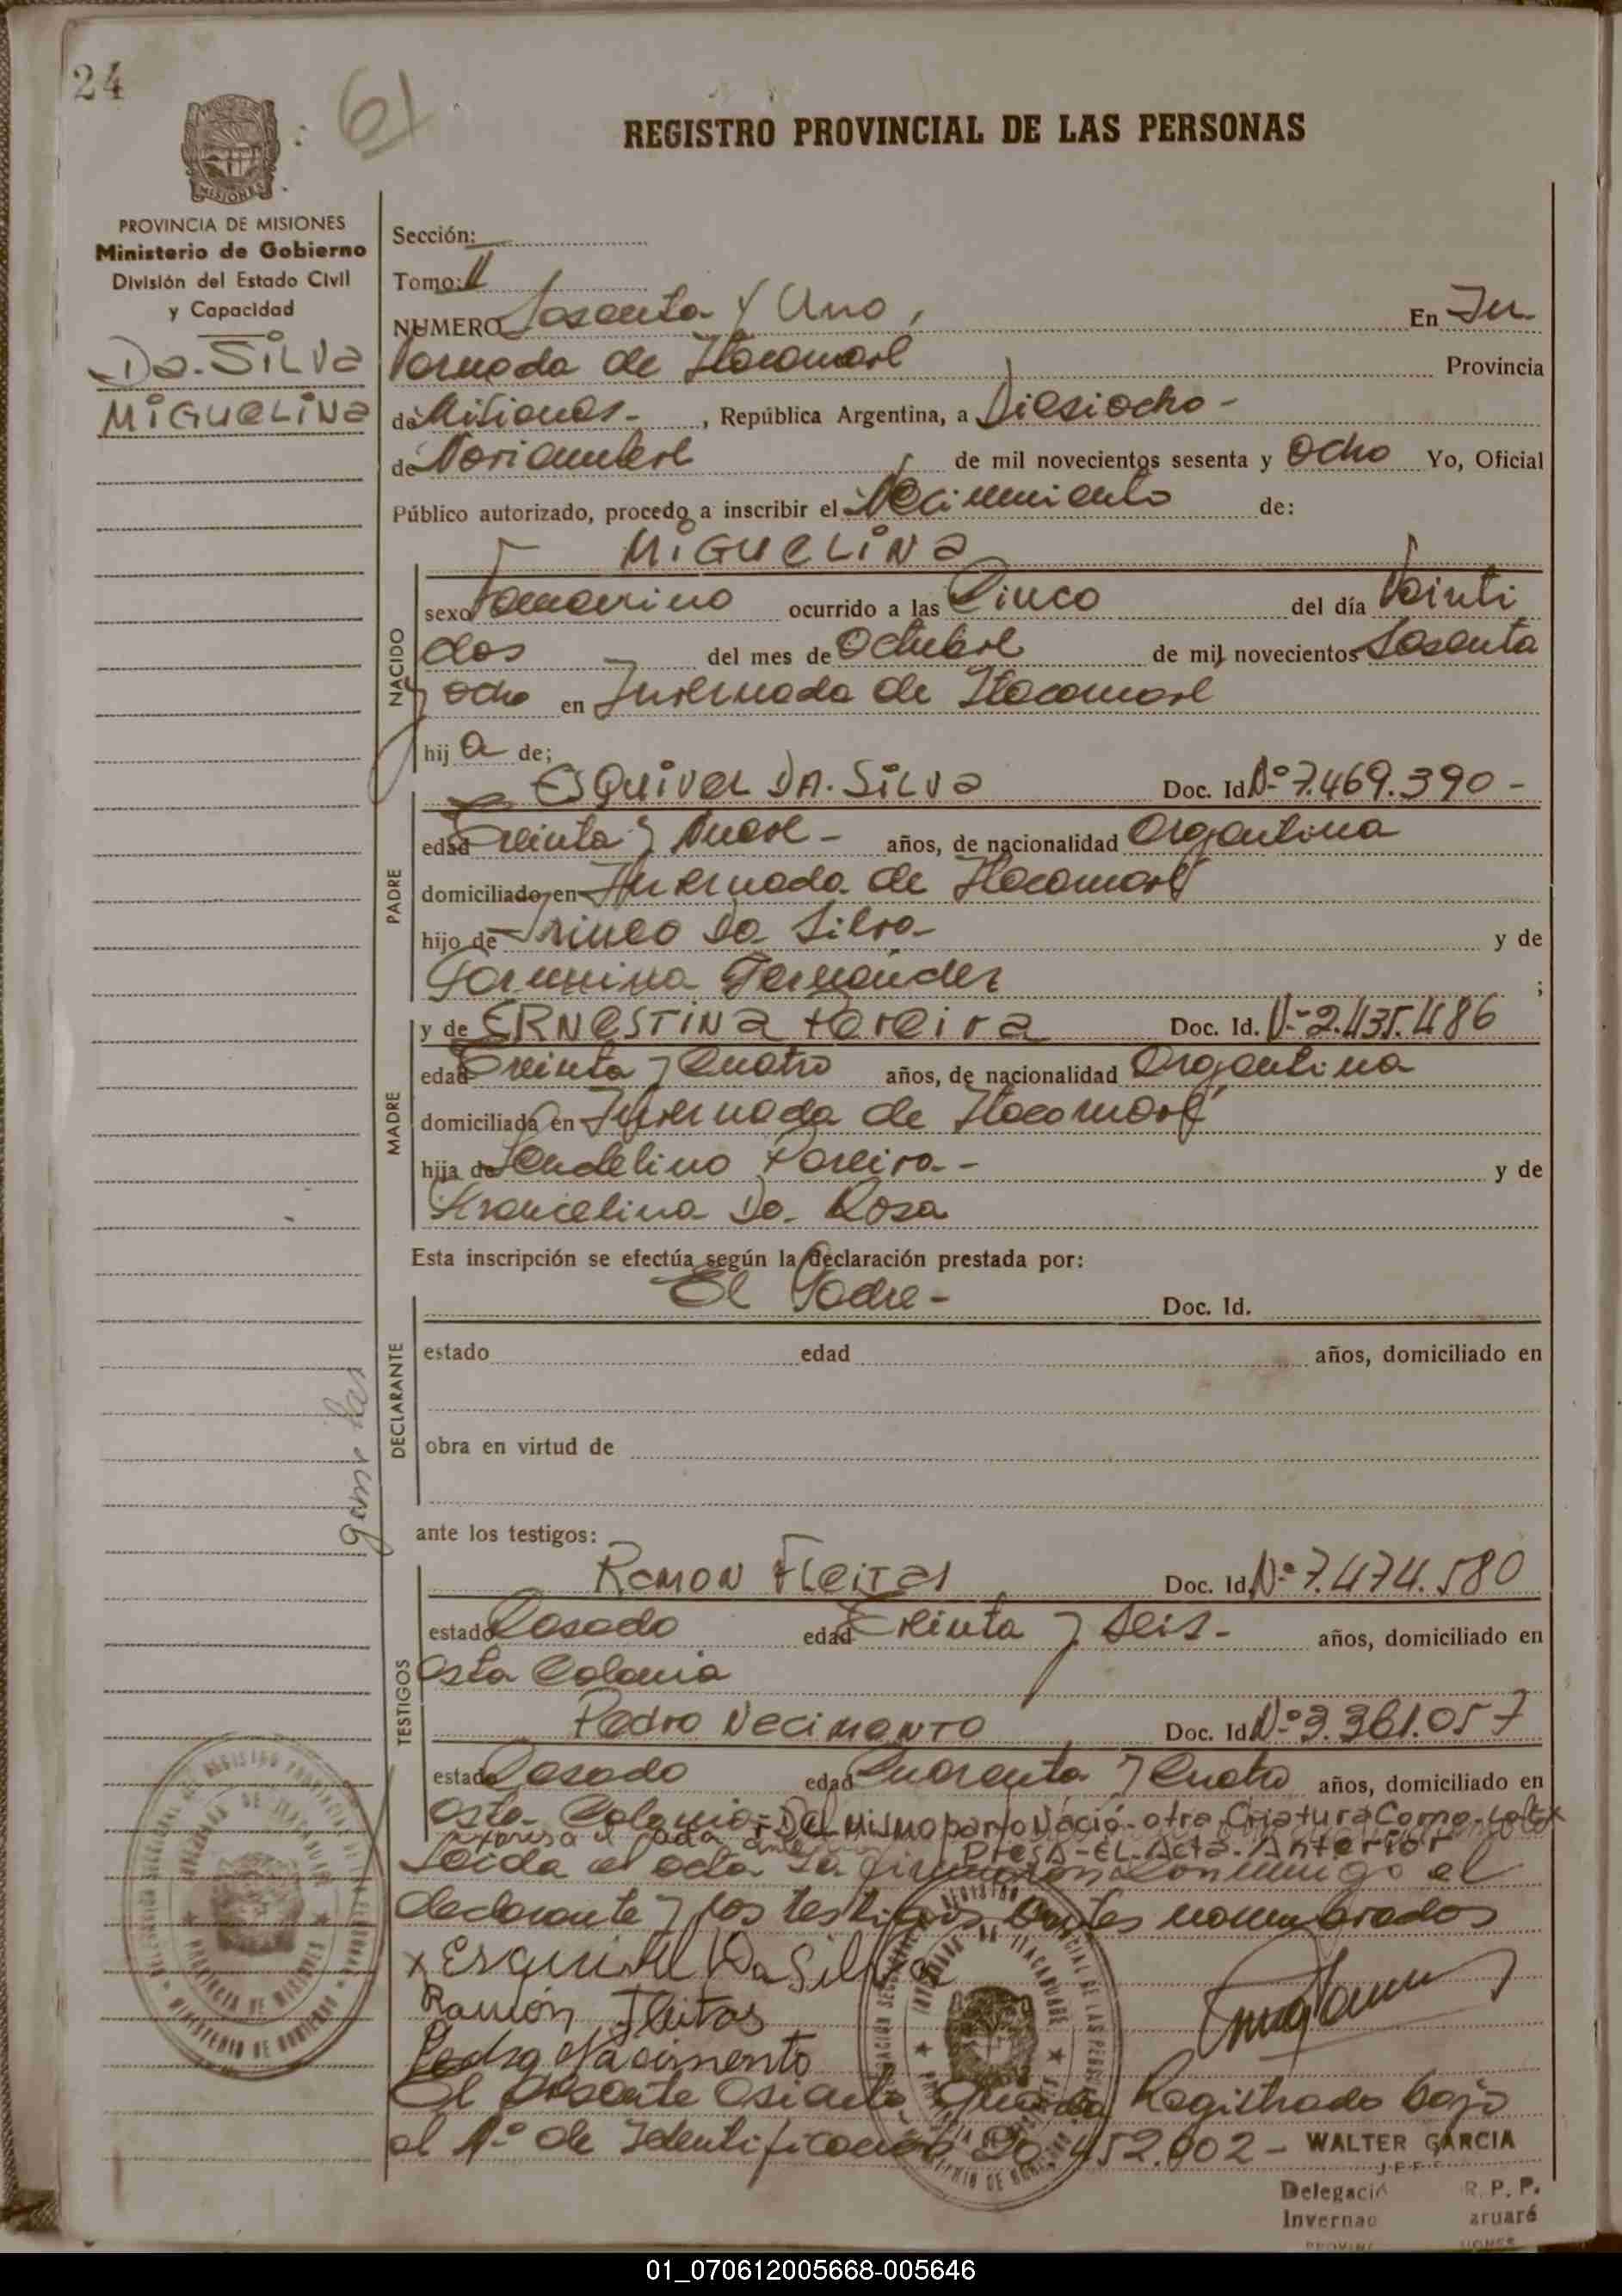 24
61
REGISTRO PROVINCIAL DE LAS PERSONAS
MISIONES
PROVINCIA DE MISIONES
Ministerio de Gobierno
División del Estado Civil
y Capacidad
Da. SILVA
MIGUELINA
Sección:
Tomo: II
NUMERO Sesenta y Uno, En In
vernada de Itacaruaré Provincia
de Misiones - , República Argentina, a Diesiocho -
de Noviembre de mil novecientos sesenta y Ocho Yo, Oficial
Público autorizado, procedo a inscribir el Nacimiento de:
NACIDO
MIGUELINA
sexo Femenino ocurrido a las Cinco del día Veinti
dos del mes de Octubre de mil novecientos Sesenta
y ocho en Invernada de Itacaruaré
hij a de;
PADRE
ESQUIVEL DA. SILVA Doc. Id. Nº 7.469.390 -
edad Treinta y Nueve - años, de nacionalidad Argentina
domiciliado en Invernada de Itacaruaré
hijo de Irineo Da Silva - y de
Fernandez ;
MADRE
y de ERNESTINA Pereira Doc. Id. Nº 2.435.486
edad Treinta y Cuatro años, de nacionalidad Argentina
domiciliada en Invernada de Itacaruaré
hija de Pereira - y de
Francelina Da. Rosa
Esta inscripción se efectúa según la declaración prestada por:
DECLARANTE
El Padre - Doc. Id.
estado edad años, domiciliado en
obra en virtud de
ante los testigos:
gemelas
TESTIGOS
Ramon Fleitas Doc. Id. Nº 7.474.580
estado Casado edad Treinta y Seis - años, domiciliado en
esta Colonia
Pedro Necimento Doc. Id. Nº 3.361.057
estado Casado edad Cuarenta y Cuatro años, domiciliado en
esta Colonia - Del mismo parto Nació otra Criatura Como
expresa el acta Presa - EL Acta Anterior
Leida el acta La firmaron conmigo el
declarante y los testigos antes nombrados
x Esquivel Da Silva
Ramón Fleitas
Pedro Nacimento
El presente asiento queda Registrado bajo
el Nº de Identificación 20.452.002 -
WALTER GARCIA
JEFE
Delegació R. P. P.
Invernad aruaré
01_070612005668-005646